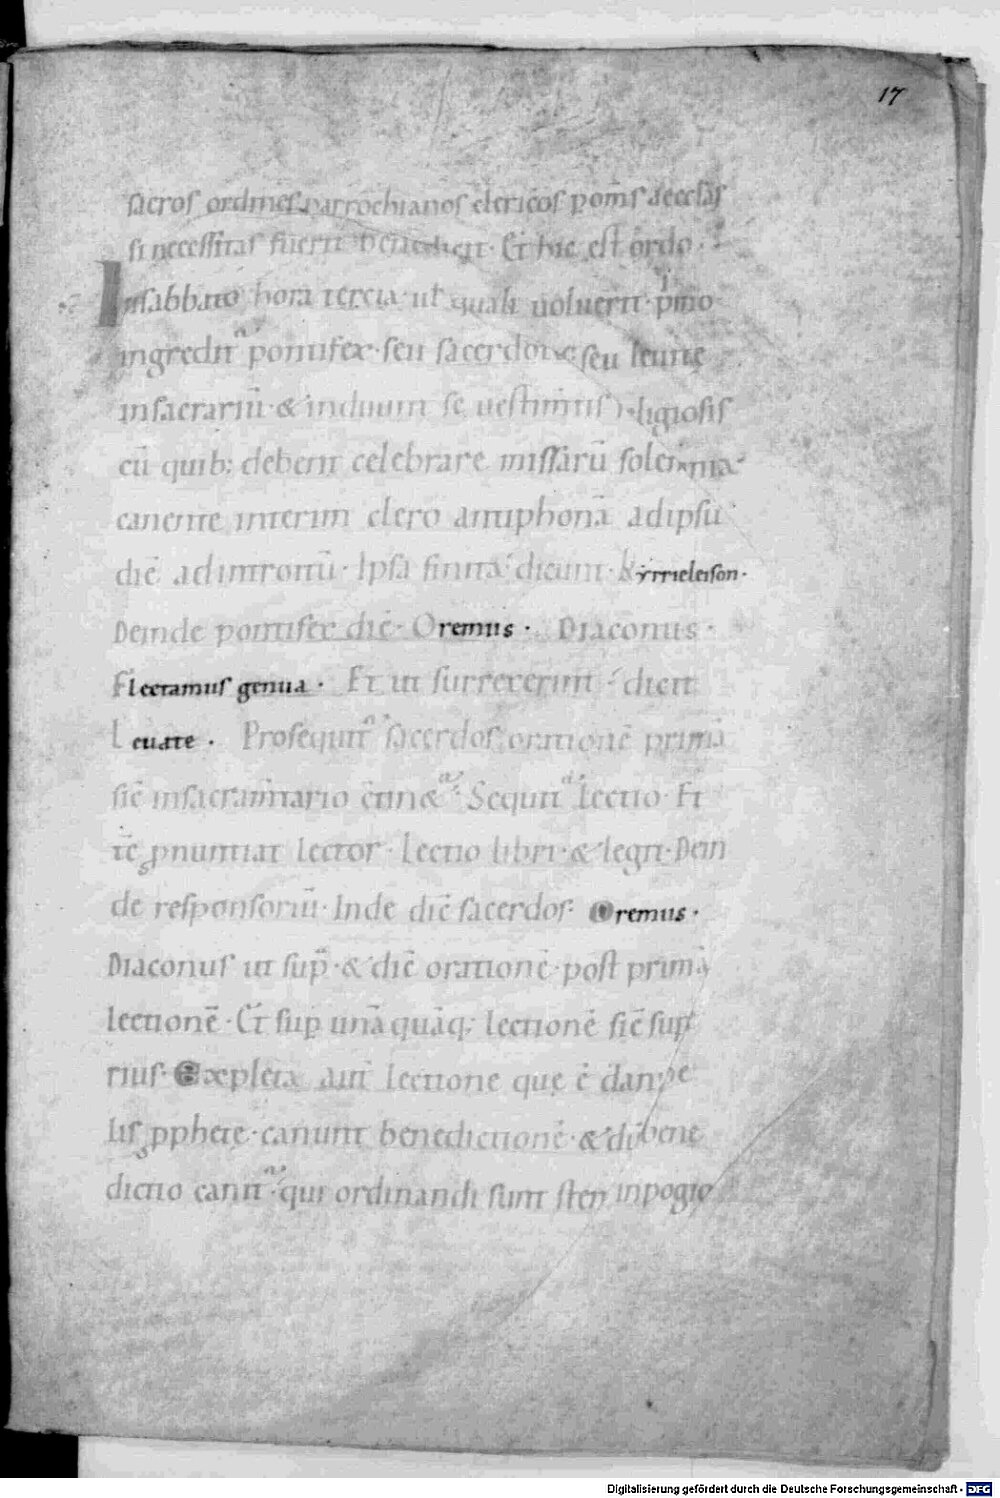 17
sacros ordines parrochianos clericos
si necessitas fuerit benedicit· Et hic est ordo·
Insabbato hora tercia· ut quali uoluerit·
ingredit᷑ pontifex· seu sacerdotes seu leuite
insacrariū· & induunt se uestimtis
cū quib; debent celebrare missarū solemnia·
canente interim clero antiphonā adipsū
diē adintroitū· Ipsa finita· dicunt· Kyrrieleison·
Deinde pontifex dic̄· Oremus· Diaconus·
Flectamus genua· Et ut surrexerint· dicit
Leuate· Prosequit᷑ sacerdos orationē primā
sic̄ insacram̄tario ctin&᷑· Sequit᷑ Lectio· Et
pnuntiat lector· Lectio libri· & legit· Dein
de responsoriū· Inde dic̄ sacerdos· Oremus·
Diaconus ut sup̄· & dic̄ orationē· post primā
lectionē· Et sup unā quāq; lectionē sic̄ supe
rius· Expleta aut̄ lectione que ē danihe
lis pphete· canunt benedictionē· & dū bene
dictio canit᷑· qui ordinandi sunt sten inpogio
Digitalisierung gefördert durch die Deutsche Forschungsgemeinschaft - DFG